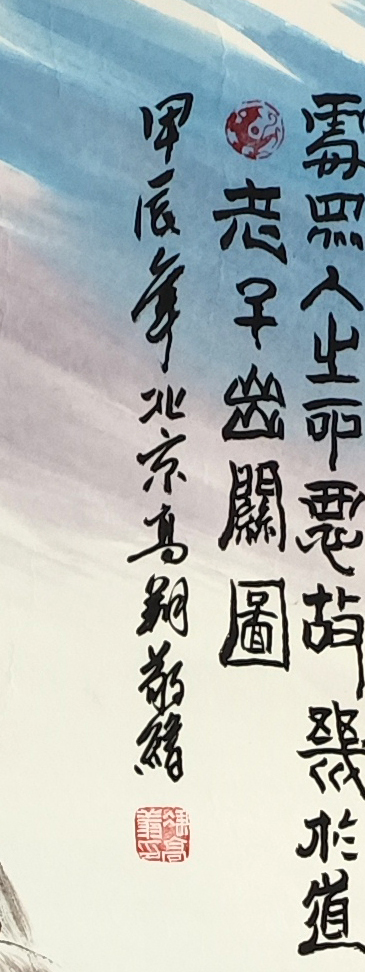 處眾人之所惡故幾於道
老子出關圖
甲辰年北京高翔敬繪